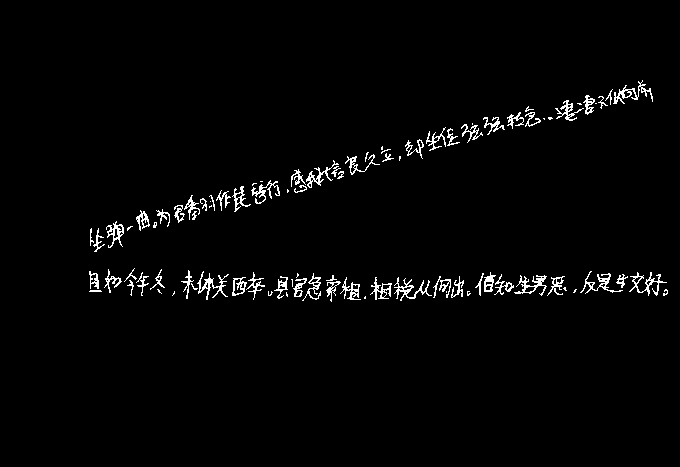 坐弹一曲。为君翻作琵琶行,感我此言良久立,却坐促弦弦转急..凄凄不似向前
且如今年冬,未休关西卒。县官急索租,租税从何出。信知生男恶,反是生女好。